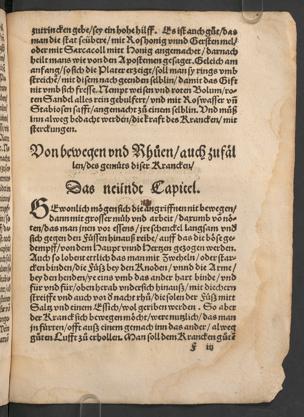 zutrincken gebe/ sey ein hohe hilff. Es ist auch gůt/ das
man die stat seübere/ mit Roßhonig vnnd Gersten mel/
oder mit Sarcacoll mitt Honig angemacht/ darnach
heilt mans wie von den Apostemen gesaget. Geleich am
anfang/ so sich die Plater erzeigt/ soll man sy rings vnd
streichs/ mit disem nach geenden selblin/ damit das Gift
nit vmb sich fresse. Nempt weisen vnd roten Bolum/ ro=
ten Sandel alles rein gebulfert/ vnd mit Roswasser vñ
Scabiosen safft/ angemacht zů einem selblin. Vnd můß
inn alweg bedacht werden/ die krafft des Krancken/ mit
sterckungen.
Von bewegen vnd Rhůen/ auch zufäl
len/ des gemüts diser Krancken/
Das neündt Capitel.
Gewonlich mögen sich die angriffnen nit bewegen/
dann mit grosser müh vnd arbeit/ darumb vonö=
ten/ das man jnen vor essens/ jre schenckel langsam vnd
sich gegen den Füssen hinauß reibe/ auff das die böse ge=
dempff/ von dem Haupt vnnd Hertzen gezogen werden.
Auch so lobent etlich das man mit Zweheln/ oder star=
cken binden/ die Füß bey den Knoden/ vnnd die Arme/
bey den henden/ ye eins vmb das ander hart binde/ vnd
für vnd für/ oben herab vnder sich hinauß/ mit diechern
streiffe vnd auch vor d nacht rhů/ die solen der Füß mitt
Saltz vnd einem Essich/ wol geriben werden. So aber
der Kranck sich bewegen möcht/ were nutzlich/ das man
in fürten/ offt auß einem gemach inn das ander/ alweg
gůten Lufft zu erhollen. Man soll dem Krancken gůte
f iij